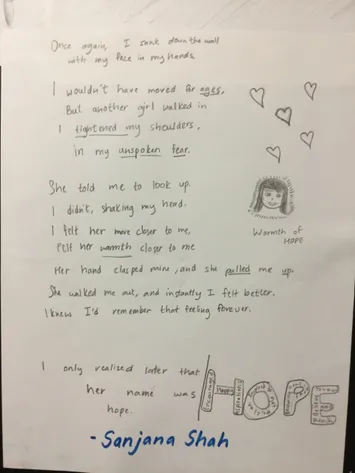 Once again, I sank down the wall
with my face in my hands.
I wouldn't have moved for ages,
But another girl walked in
I tightened my shoulders,
in my unspoken fear.
She told me to look up.
I didn't, shaking my head.
I felt her move closer to me,
Felt her warmth closer to me
Her hand clasped mine, and she pulled me up.
She walked me out, and instantly I felt better.
I knew I'd remember that feeling forever.
Warmth of
HOPE
I only realised later that
her name was
hope.
HOPE
- Sanjana Shah